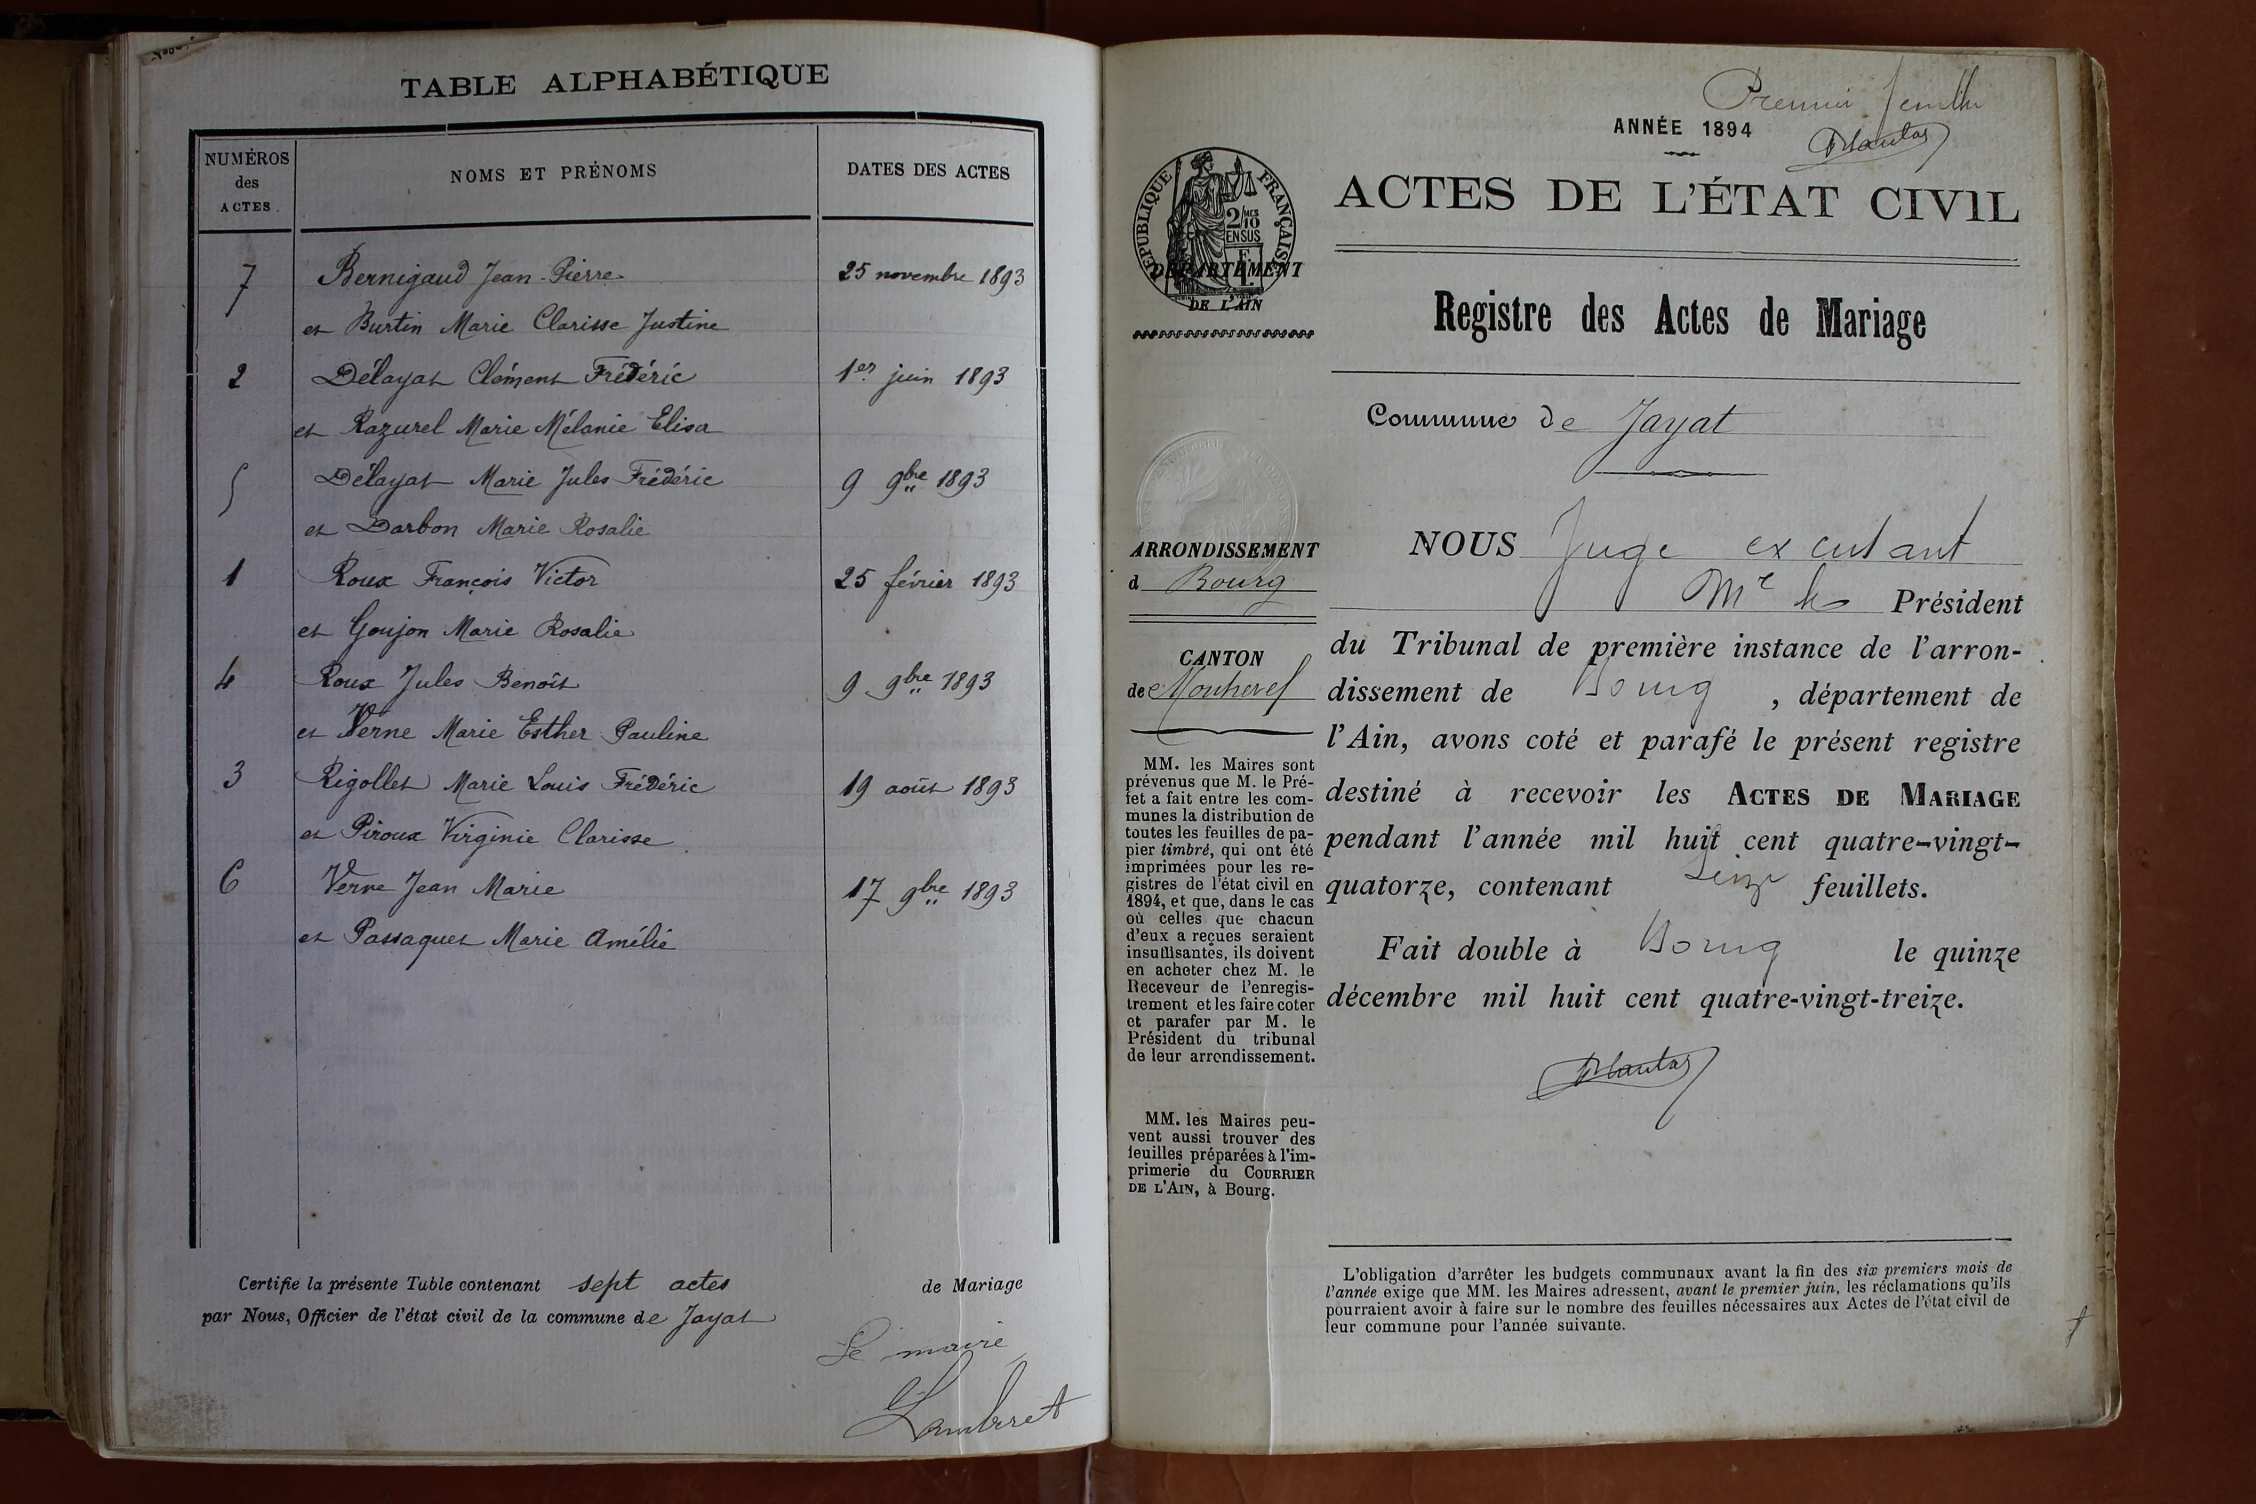 TABLE ALPHABÉTIQUE
NUMÉROS
des
ACTES
NOMS ET PRÉNOMS
DATES DES ACTES
7 Bernigaud Jean-Pierre 25 novembre 1893
et Burtin Marie Clarisse Justine
2 Délayat Clément Frédéric 1er juin 1893
et Razurel Marie Mélanie Elisa
5 Délayat Marie Jules Frédéric 9 9bre 1893
et Darbon Marie Rosalie
1 Roux François Victor 25 février 1893
et Goujon Marie Rosalie
4 Roux Jules Benoît 9 9bre 1893
et Verne Marie Esther Pauline
3 Rigollet Marie Louis Frédéric 19 août 1893
et Piroux Virginie Clarisse
6 Verne Jean Marie 17 9bre 1893
et Passaquet Marie Amélie
Certifie la présente Table contenant sept actes de Mariage
par Nous, Officier de l'état civil de la commune de Jayat
Le maire
Lamberet
Premier feuillet
ANNÉE 1894
ACTES DE L'ÉTAT CIVIL
RÉPUBLIQUE FRANÇAISE
2/10 MES
EN SUS
DÉPARTEMENT
DE L'AIN
Registre des Actes de Mariage
Commune de Jayat
ARRONDISSEMENT
d Bourg
CANTON
de Montrevel
MM. les Maires sont
prévenus que M. le Pré-
fet a fait entre les com-
munes la distribution de
toutes les feuilles de pa-
pier timbré, qui ont été
imprimées pour les re-
gistres de l'état civil en
1894, et que, dans le cas
où celles que chacun
d'eux a reçues seraient
insuffisantes, ils doivent
en acheter chez M. le
Receveur de l'enregis-
trement et les faire coter
et parafer par M. le
Président du tribunal
de leur arrondissement.
MM. les Maires peu-
vent aussi trouver des
feuilles préparées à l'im-
primerie du COURRIER
DE L'AIN, à Bourg.
NOUS Juge excutant
Mr le Président
du Tribunal de première instance de l'arron-
dissement de Bourg, département de
l'Ain, avons coté et parafé le présent registre
destiné à recevoir les ACTES DE MARIAGE
pendant l'année mil huit cent quatre-vingt-
quatorze, contenant Seize feuillets.
Fait double à Bourg le quinze
décembre mil huit cent quatre-vingt-treize.
L'obligation d'arrêter les budgets communaux avant la fin des six premiers mois de
l'année exige que MM. les Maires adressent, avant le premier juin, les réclamations qu'ils
pourraient avoir à faire sur le nombre des feuilles nécessaires aux Actes de l'état civil de
leur commune pour l'année suivante.